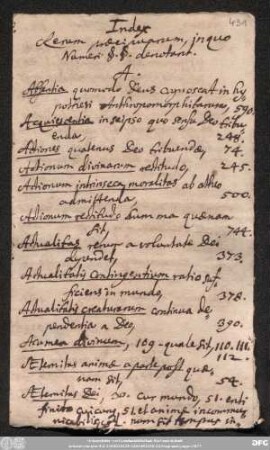 431
Index
Rerum praecipuarum, in quo
Numeri §. §. denotant.
A.
Absentia quomodo Deus cognoscat in hy-
pothesi Anthropomorphitarum, 590.
Acquiescentia in seipso quo sensu Deo tribu-
enda, 248.
Actiones quatenus Deo tribuendae, 74.
Actionum divinarum rectitudo, 245.
Actionum intrinseca moralitas ab atheo
admittenda, 500.
Actionum rectitudo summa quaenam
sit, 744.
Actualitas rerum a voluntate Dei
dependet, 373.
Actualitatis contingentium ratio suf-
ficiens in mundo, 378.
Actualitatis creaturarum continua de-
pendentia a Deo, 390.
Acumen divinum, 109. quale sit, 110. 111.
112.
Aeternitas animae a parte post quae-
nam sit, 54.
Aeternitas Dei, 50. cur mundo, 51. enti
finito cuicunque, 51. et animae incommu-
nicabilis, num sit tempus in-